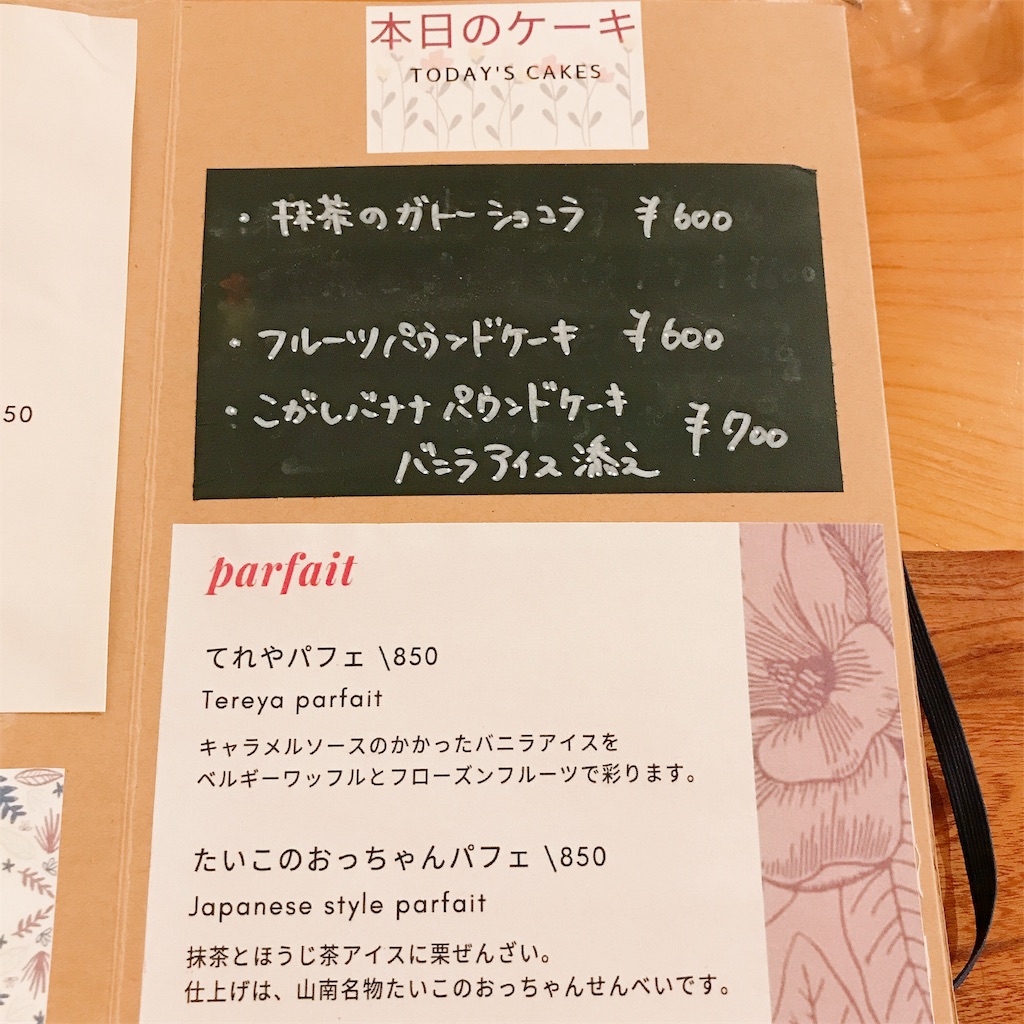 本日のケーキ
TODAY'S CAKES
・抹茶のガトーショコラ ¥600
・フルーツパウンドケーキ ¥600
・こがしバナナパウンドケーキ
バニラアイス添え ¥700
50
parfait
てれやパフェ \850
Tereya parfait
キャラメルソースのかかったバニラアイスを
ベルギーワッフルとフローズンフルーツで彩ります。
たいこのおっちゃんパフェ \850
Japanese style parfait
抹茶とほうじ茶アイスに栗ぜんざい。
仕上げは、山南名物たいこのおっちゃんせんべいです。